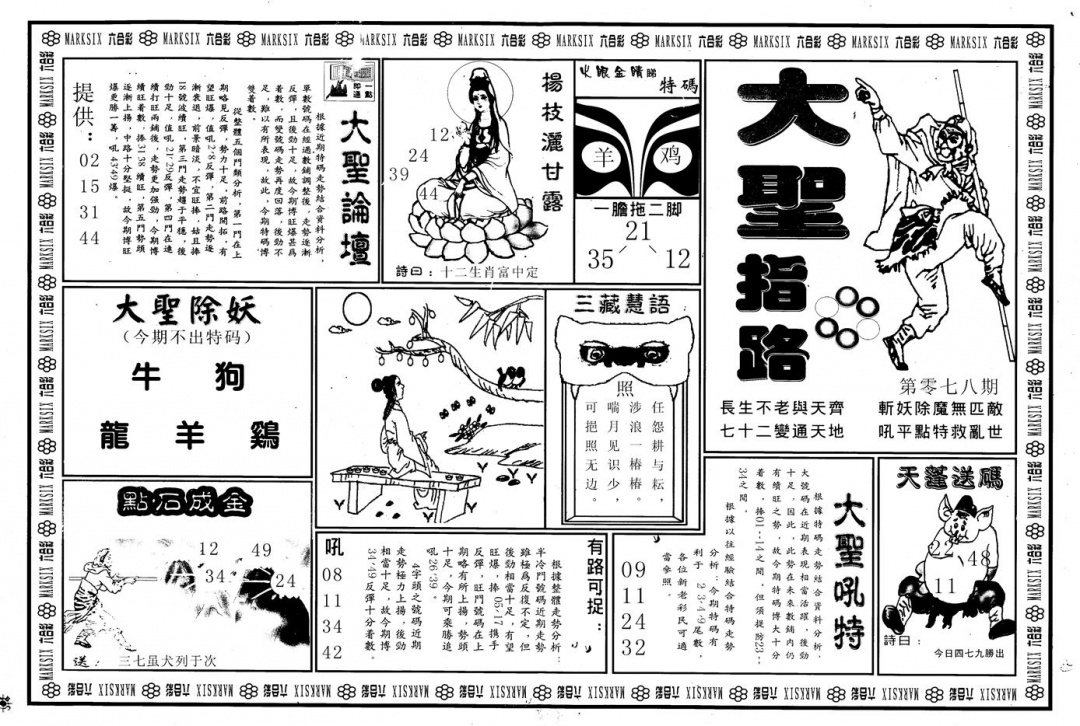 MARKSIX 六合彩 MARKSIX 六合彩 MARKSIX 六合彩 MARKSIX 六合彩 MARKSIX 六合彩 MARKSIX 六合彩 MARKSIX 六合彩 MARKSIX 六合彩 MARKSIX 六合彩 MARKSIX 六合彩
大聖指路
第零七八期
長生不老與天齊
七十二變通天地
斬妖除魔無匹敵
吼平點特救亂世
火眼金睛睇
特碼
羊
鸡
一膽拖二脚
21
35
12
楊枝灑甘露
12
24
39
44
詩曰：十二生肖富中定
一點即通
大聖論壇
根據近期特碼走勢結合資料分析，
單數號碼在經過數鋪調整後，走勢逐漸
反彈，且後勁十足，故今期博旺爆甚爲
着數，而變號碼走勢再度回落，後勁不
足，雖以有所表現，故此，今期特碼博
雙着數。
從整體五個門類分析，第一門在上
期略見反彈，勢力十足，前路開拓，有
望旺爆，值吼2·8反彈，第二門走勢逐
漸衰退，前景暗淡，不宜旺捧，姑且捧
18號波續旺，第三門走勢趨于平穩，後
勁十足，值吼21·29反彈，第四門在連
續打旺兩鋪後，走勢更加强勁，今期博
續旺看數，捧31·38續旺，第五門勢頭
逐漸上揚，中路十分堅挺，故今期博旺
爆更勝一籌，吼43·49爆。
提供：
02
15
31
44
大聖除妖
（今期不出特码）
牛 狗
龍 羊 鷄
三藏慧語
照
任怨耕与耘，
涉浪一樁樁。
喘月见识少，
可挹照无边。
點石成金
12
49
34
24
送：三七虽犬列于次
有路可捉：
根據整體走勢分析：
半冷門號碼近期走勢
雖極爲反復不定，但
後勁相當十足，有望
旺爆，捧05·17携手
反彈，旺門號碼在上
期略有所上揚，勢頭
十足，今期可乘勝追
吼26·39。
4字頭之號碼近期
走勢極力上揚，後勁
相當十足，故今期博
34·49反彈十分看數。
吼
08
11
34
42
大聖吼特
根據特碼走勢結合資料分析，
大號碼在近期表現相當活躍，後勁
十足，因此，此勢在未來數鋪内仍
有續旺之勢，故今期特碼博大十分
着數，捧01—14之間，但須提防23—
34之間。
根據以往經驗結合特碼走勢
分析：今期特碼有
利于2·3·4·9尾數。
各位新老彩民可適
當參照。
09
11
24
32
天蓬送碼
48
11
詩曰：
今日四七九勝出